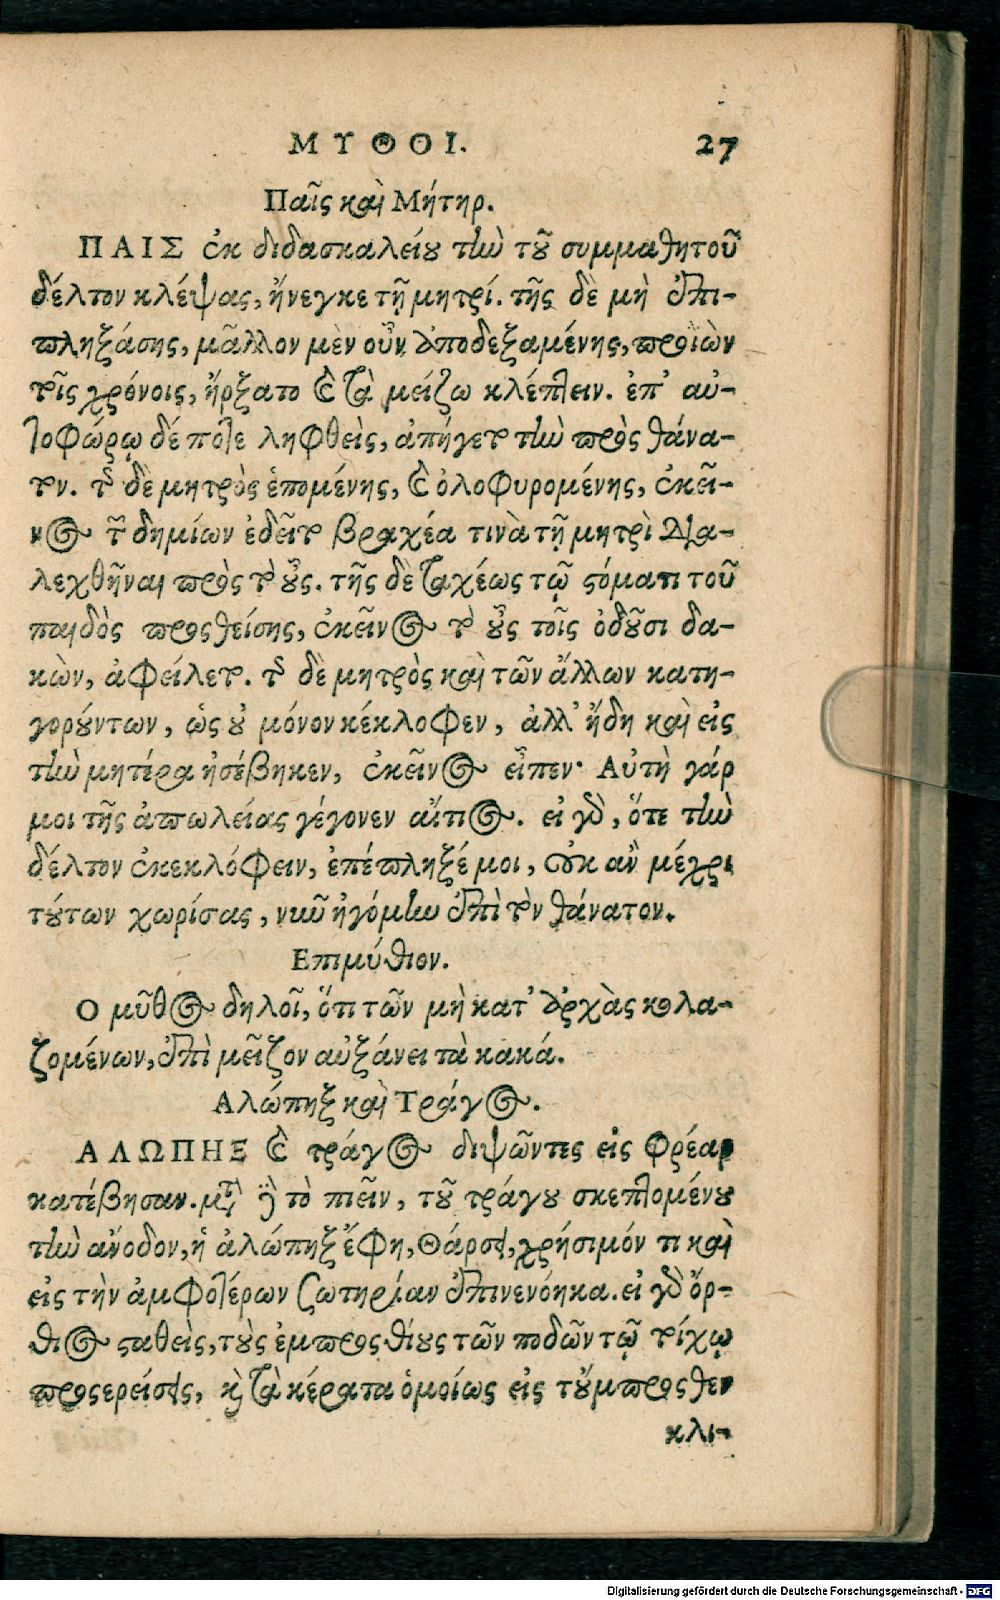 ΜΥΘΟΙ. 27
Παῖς καὶ Μήτηρ.
ΠΑΙΣ ἐκ διδασκαλείου τὴν τοῦ συμμαθητοῦ
δέλτον κλέψας, ἤνεγκε τῇ μητρί. τῆς δὲ μὴ ἐπι-
πληξάσης, μᾶλλον μὲν οὖν ἀποδεξαμένης, προϊὼν
τοῖς χρόνοις, ἤρξατο καὶ τὰ μείζω κλέπτειν. ἐπ' αὐ-
τοφώρῳ δέ ποτε ληφθεὶς, ἀπήγετο τὴν πρὸς θάνα-
τον. τῆς δὲ μητρὸς ἑπομένης, καὶ ὀλοφυρομένης, ἐκεῖ-
νος τῶν δημίων ἐδεῖτο βραχέα τινὰ τῇ μητρὶ δια-
λεχθῆναι πρὸς τὸ οὖς. τῆς δὲ ταχέως τῷ στόματι τοῦ
παιδὸς προσθείσης, ἐκεῖνος τὸ οὖς τοῖς ὀδοῦσι δα-
κὼν, ἀφείλετο. τῆς δὲ μητρὸς καὶ τῶν ἄλλων κατη-
γορούντων, ὡς οὐ μόνον κέκλοφεν, ἀλλ' ἤδη καὶ εἰς
τὴν μητέρα ἠσέβηκεν, ἐκεῖνος εἶπεν· Αὐτὴ γάρ
μοι τῆς ἀπωλείας γέγονεν αἴτιος. εἰ γὰρ, ὅτε τὴν
δέλτον ἐκεκλόφειν, ἐπέπληξέ μοι, οὐκ ἂν μέχρι
τούτων χωρίσας, νῦν ἠγόμην ἐπὶ τὸν θάνατον.
Επιμύθιον.
Ο μῦθος δηλοῖ, ὅτι τῶν μὴ κατ' ἀρχὰς κολα-
ζομένων, ἐπὶ μεῖζον αὐξάνει τὰ κακά.
Αλώπηξ καὶ Τράγος.
ΑΛΩΠΗΞ καὶ τράγος διψῶντες εἰς φρέαρ
κατέβησαν. μετὰ δὲ τὸ πιεῖν, τοῦ τράγου σκεπτομένου
τὴν ἄνοδον, ἡ ἀλώπηξ ἔφη, Θάρσει, χρήσιμόν τι καὶ
εἰς τὴν ἀμφοτέρων σωτηρίαν ἐπινενόηκα. εἰ γὰρ ὄρ-
θιος σταθεὶς, τοὺς ἐμπροσθίους τῶν ποδῶν τῷ τοίχῳ
προσερείσεις, καὶ τὰ κέρατα ὁμοίως εἰς τοὔμπροσθεν
κλι-
Digitalisierung gefördert durch die Deutsche Forschungsgemeinschaft - DFG